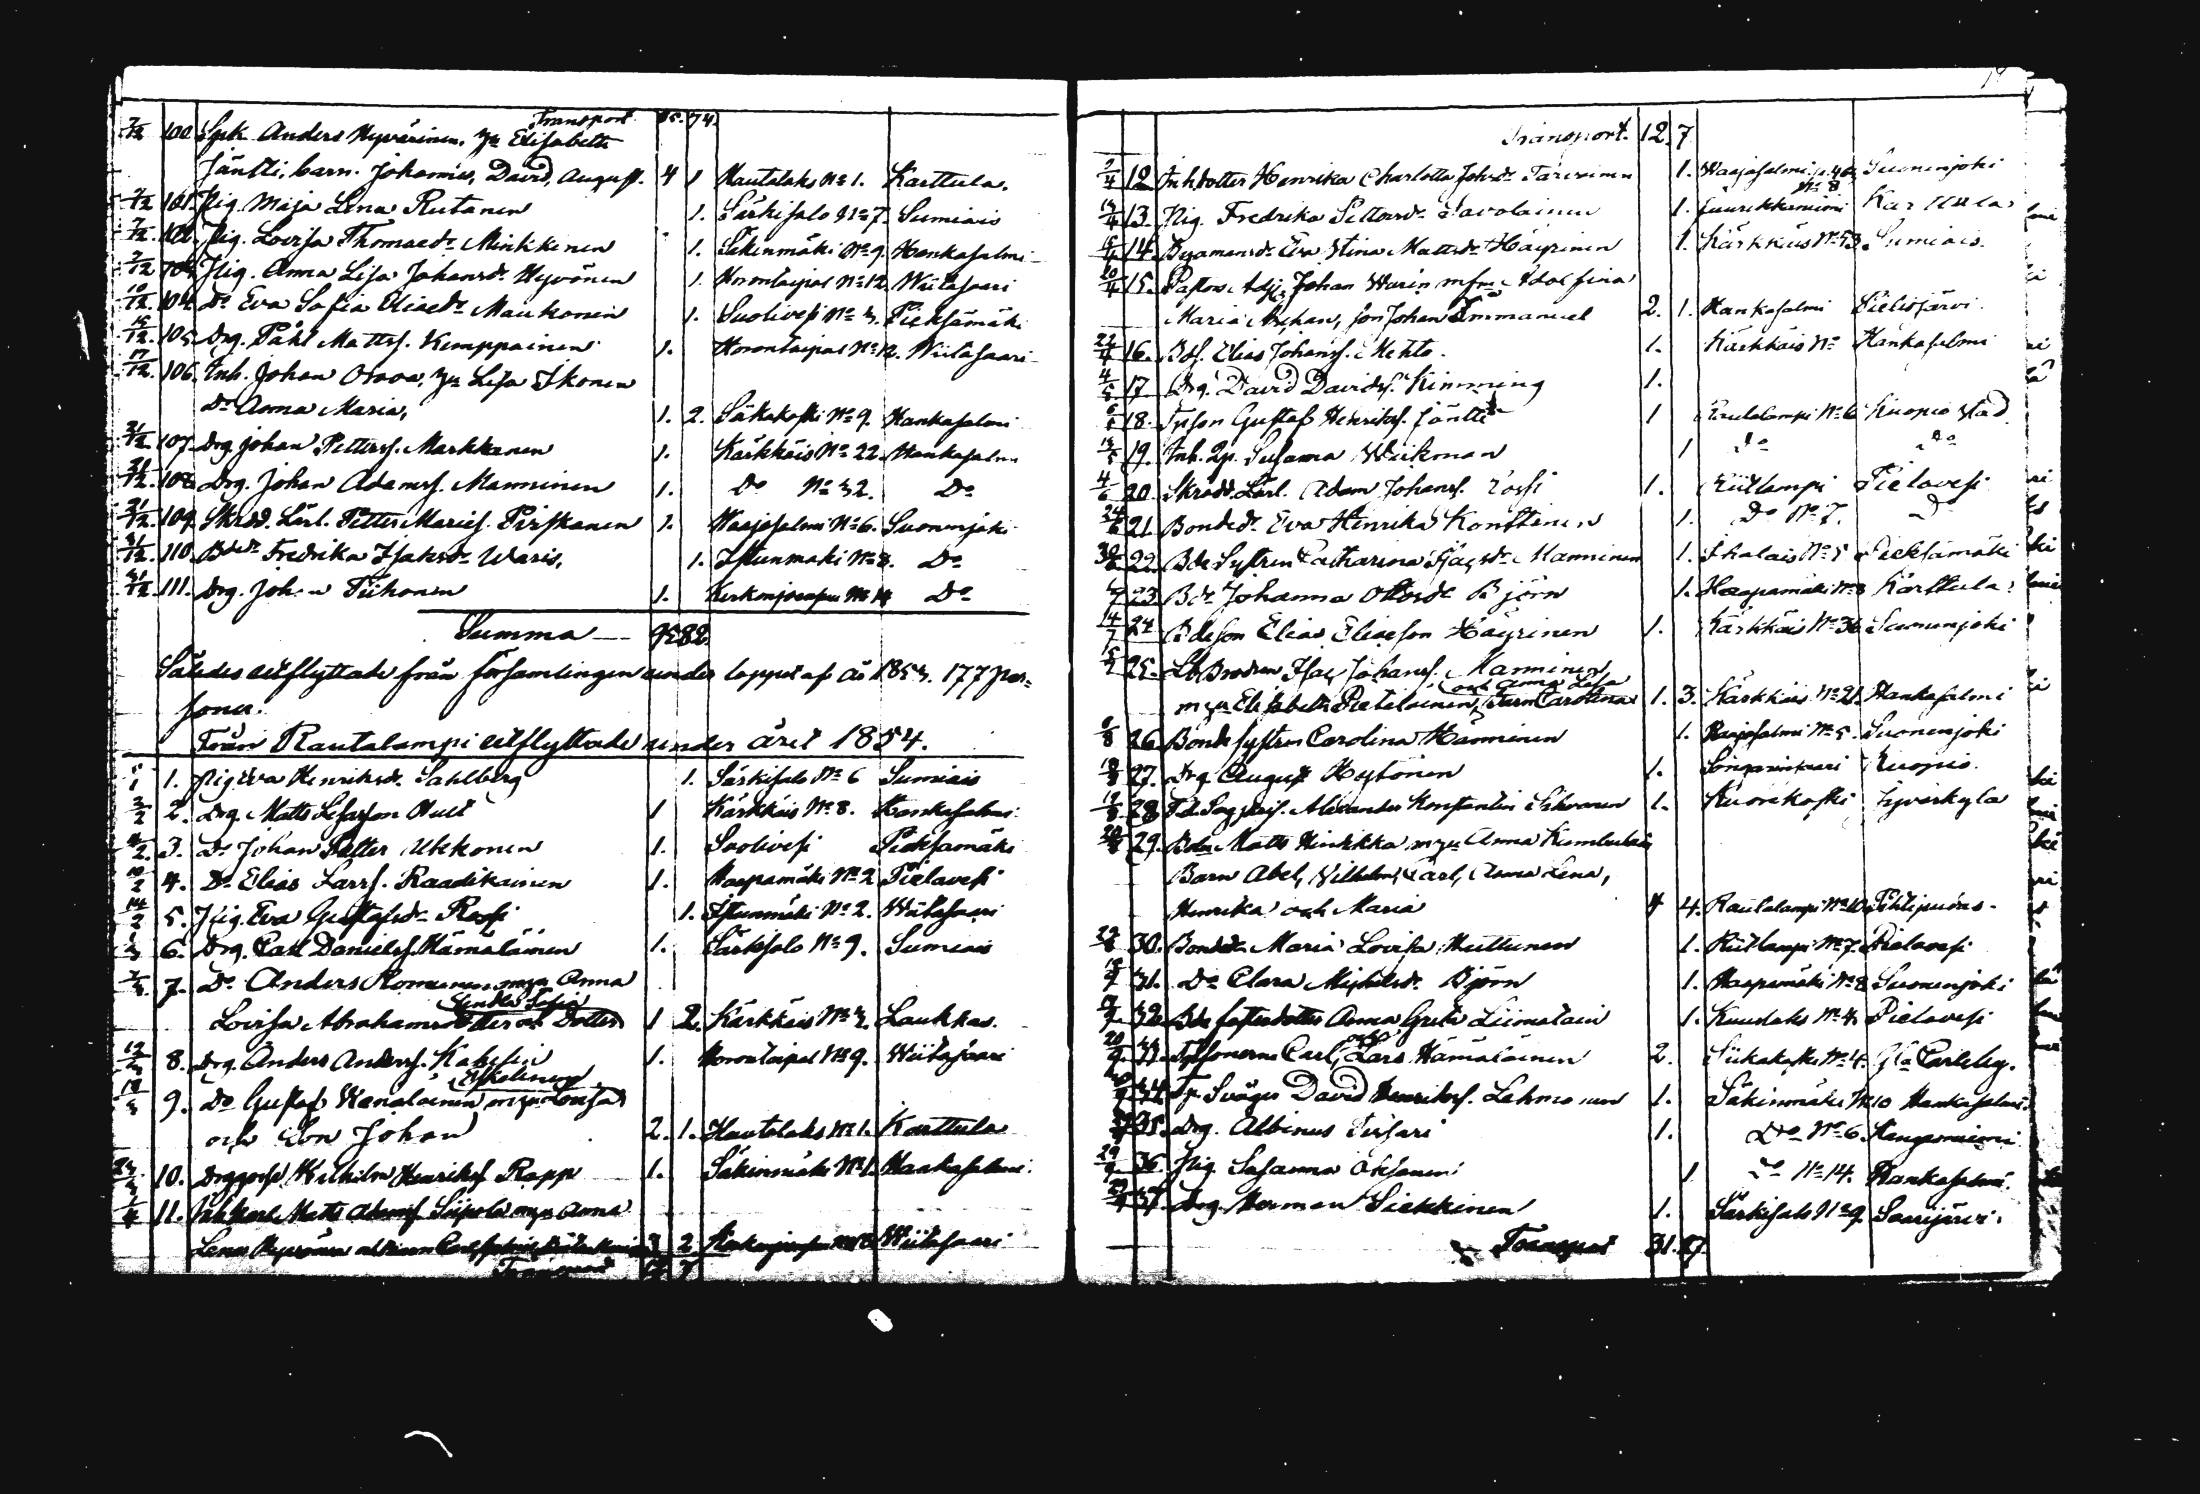 Transport 85. 74.
7/12 100. Spk. Anders Hyvärinen, Hu Elisabeth
Jäntti, barn. Johannes, David, August. 4 1 Hautolaks No 1. Karttula.
7/12 101. Pig. Maja Lena Rutanen 1. Särkisalo No 7. Sumiais
7/12 102. Pig. Lovisa Thomaedr. Minkkinen 1. Säkinmäki No 9. Hankasalmi
7/12 103. Pig. Anna Lisa Johansdr. Hyvönen 1. Horontaipal No 12. Wiitasaari
10/12 104. Do Eva Sofia Eliaedr. Maukonen 1. Suolivesi No 3. Pieksämäki
15/12 105. Drg. Påhl Mattss. Kemppainen 1. Horontaipal No 12. Wiitasaari
17/12 106. Inh. Johan Orava, Hu Lisa Ikonen
Dr Anna Maria, 1. 2. Säkakoski No 9. Hankasalmi
21/12 107. Drg. Johan Petterss. Markkanen 1. Kärkkäis No 22. Hankasalmi
21/12 108. Drg. Johan Adamss. Manninen 1. Do No 32. Do
21/12 109. Skrdd. Lärl. Petter Mariess. Pirskanen 1. Waajasalmi No 6. Suonenjoki
31/12 110. Bdedr Fredrika Isaksdr Waris, 1. Istunmäki No 8. Do
31/12 111. Drg. Johan Tiihonen 1. Kerkonjoensuu No 14 Do
Summa 95 82
Således utflyttade från församlingen under loppet af år 1853. 177 per=
soner.
Från Rautalampi utflyttade under året 1854.
5/1 1. Pig Eva Henriksdr. Sahlberg 1. Särkisalo No 6 Sumiais
2/2 2. Drg. Matts 1 Kärkkäis No 8. Hankasalmi
4/2 3. Dr Johan Petter Ukkonen 1. Suolivesi Pieksämäki
10/2 4. Dr Elias Larss. Raadikainen 1. Haapamäki No 2 Pielavesi
14/2 5. Pig. Eva Gustafsdr Rossi 1. Istunmäki No 2. Wiitasaari
1/3 6. Drg. Carl Danielss. Hämäläinen 1. Särkisalo No 9. Sumiais
7. Do Anders Romanen m hu Anna
Lovisa Abrahamsdotter och Dotter 1 2. Kärkkäis No 3. Laukkas.
12/3 8. Drg. Anders Anderss. 1. Horontaipal No 9. Wiitasaari
18/3 9. Do Gustaf Wanalainen m hu Lovisa Askolinen
och Son Johan 2. 1. Hautolaks No 1. Karttula
23/3 10. Wilhelm Henrikss Rapp 1. Säkinmäki No 1. Hankasalmi.
1/4 11. Matts Adamss. Siipola m hu Anna
Lena 3 2. Wiitasaari
Transport 12 7
Transport. 12. 7
2/4 12. Inh. dotter Henrika Charlotta Johsdr. Tarvainen 1. Waajasalmi Suonenjoki
13/4 13. Pig. Fredrika Pettersdr. Savolainen 1. Juurikkaniemi No 8 Karttula
14. Bgdmansdr. Eva Stina Mattsdr. Häyrinen 1. Kärkkäis No 53 Sumiais.
20/4 15. Pastors Adj. Johan Warin m fru Adolfina
Maria, son Johan Immanuel 2. 1. Hankasalmi Pielisjärvi.
22/4 16. Bds. Elias Johanss. Mehto. 1. Kärkkäis No Hankasalmi
4/5 17. Drg. David Davidss. Kimming 1.
6/5 18. Tpson Gustaf Henrikss. Jäntti 1 Rautalampi No 6 Kuopio Stad.
13/5 19. Inh. Susanna Wiikman 1 Do Do
4/6 20. Skrädd. Lärl. Adam Johanss. Rossi 1. Kiitlampi Pielavesi
24/6 21. Bondedr. Eva Henrika Konttinen 1. Do No 7. Do
30/6 22. Bde Systren Catharina Isacsdr. Manninen 1. No 5 Pieksämäki
23. Bdr Johanna Ottosdr Björn 1. Haapamäki No 8 Karttula.
14/7 24. Bdeson Elias Eliaeson Häyrinen 1. Kärkkäis No 36 Suonenjoki
15/7 25. Lb. Brodren Isac Johanss. Manninen
m hu Elisabeth Pietiläinen, barn Carolina och Anna Lisa 1. 3. Kärkkäis No 21. Hankasalmi
6/8 26. Bonde systren Carolina Hänninen 1. Waajasalmi No 5. Suonenjoki
27. Drg. August Heytönen 1. Kuopio.
28. Alexander Konstantin 1. Kuorekoski Jyväskylä
29. Bden Matts Hinkkka m hu Anna
Barn Abel, Vilhelm, Carl, Anna Lena,
Henrika och Maria 4 4. Rautalampi No 10 Pihtipudas.
29/8 30. Bondedr. Maria Lovisa Huttunen 1. Kiitlampi No 7. Pielavesi
31. Do Clara Michelsdr. Björn 1. Haapamäki No 8 Suonenjoki
32. Anna Greta Liimatain 1. Kuuslaks No 4. Pielavesi
20/9 33. Tpssönerne Carl och Lars Hämäläinen 2. Siikakoski No 4. Gla Carleby.
34. Tp. Svåger David Henrikss. Lahmonen 1. Säkinmäki No 10 Hankasalmi.
35. Drg. Albinus Pursari 1. Do No 6. Kangasniemi
29/9 36. Pig. Susanna Oksanen 1 Do No 14. Hankasalmi.
29/9 37. Drg. Herman Siekkinen 1. Särkisalo No 9. Saarijärvi.
Transport 31. 27